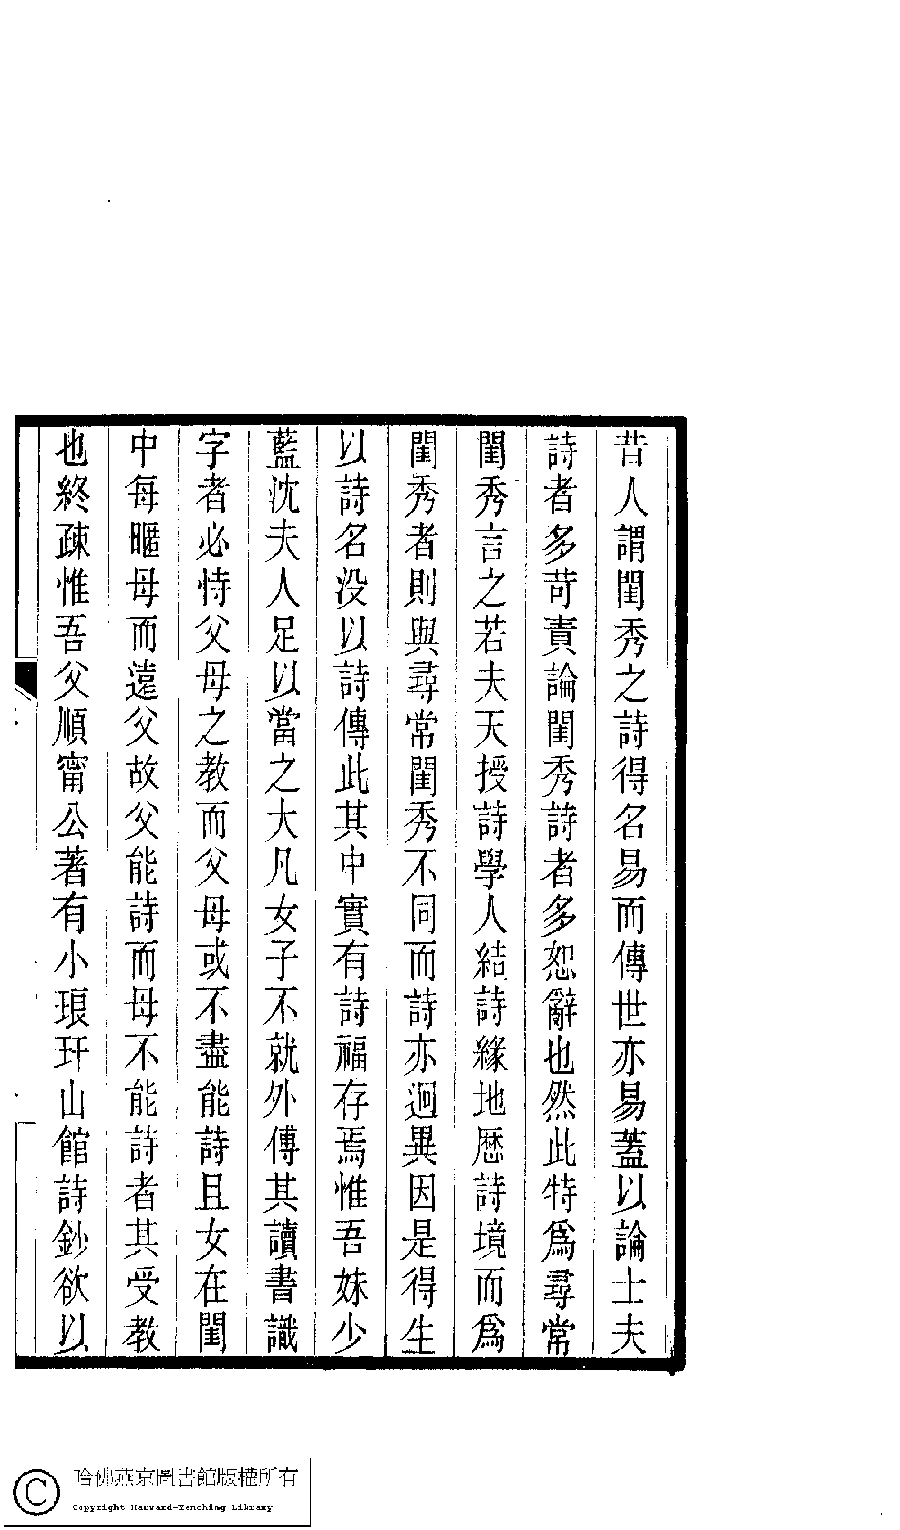 昔人謂閨秀之詩得名易而傳世亦易蓋以論士夫
詩者多苛責論閨秀詩者多恕辭也然此特爲尋常
閨秀言之若夫天授詩學人結詩緣地歷詩境而爲
閨秀者則與尋常閨秀不同而詩亦迥異因是得生
以詩名没以詩傳此其中實有詩福存焉惟吾妹少
藍沈夫人足以當之大凡女子不就外傅其讀書識
字者必恃父母之教而父母或不盡能詩且女在閨
中每暱母而遠父故父能詩而母不能詩者其受教
也終疎惟吾父順甯公著有小琅玕山館詩鈔欲以
哈佛燕京圖書館版權所有
Copyright Harvard-Yenching Library